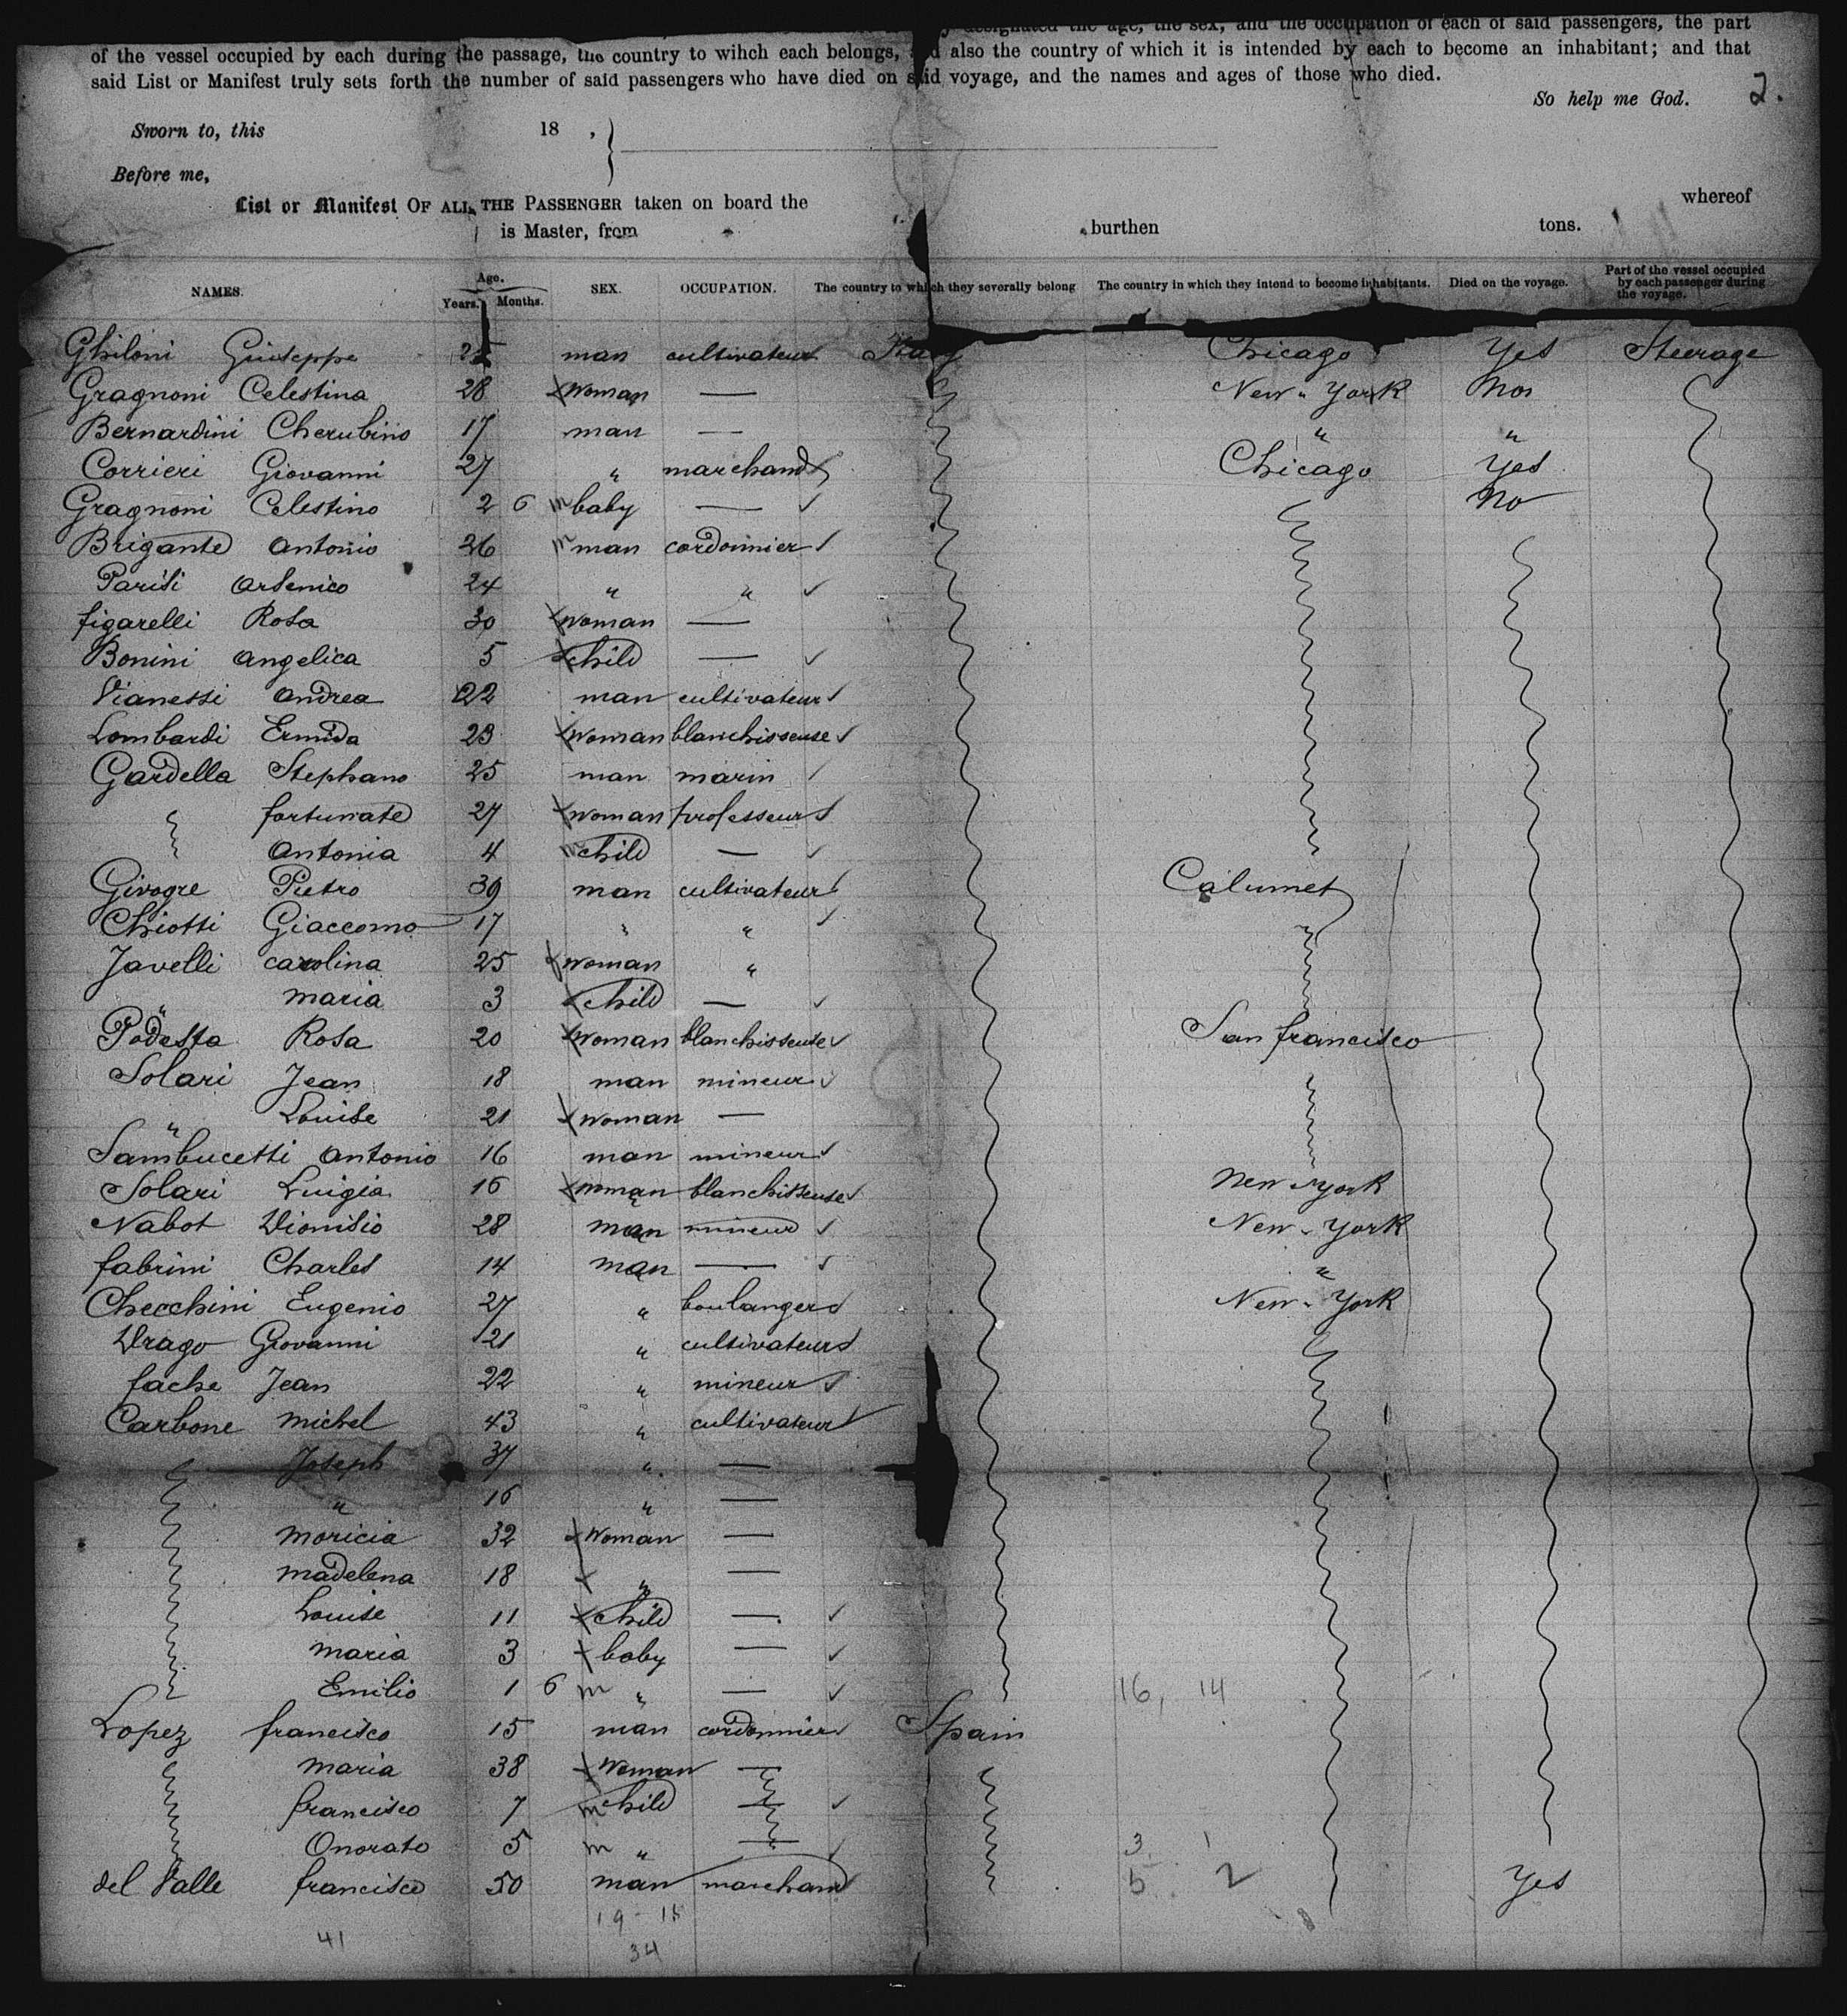 designated the age, the sex, and the occupation of each of said passengers, the part
of the vessel occupied by each during the passage, the country to wihch each belongs, and also the country of which it is intended by each to become an inhabitant; and that
said List or Manifest truly sets forth the number of said passengers who have died on said voyage, and the names and ages of those who died.
So help me God. 2.
Sworn to, this 18 ,
Before me,
List or Manifest OF ALL THE PASSENGER taken on board the whereof
is Master, from burthen tons.
NAMES. Age. Years. Months. SEX. OCCUPATION. The country to which they severally belong The country in which they intend to become inhabitants. Died on the voyage. Part of the vessel occupied by each passenger during the voyage.
Ghiloni Giuseppe man cultivateur Italy Chicago Yes Steerage
Gragnoni Celestina 28 woman — New-York
Bernardini Cherubino 17 man — " "
Corrieri Giovanni 27 " marchand Chicago Yes
Gragnoni Celestino 2 6 m baby — No
Brigante Antonio 26 m man cordonnier
Parisi Arsenico 24 " "
figarelli Rosa 30 woman —
Bonini Angelica 5 child —
Vianessi Andrea 22 man cultivateur
Lombardi Ermida 23 woman blanchisseuse
Gardella Stephano 25 man marin
fortunate 27 woman professeur
Antonia 4 m child —
Givogre Pietro 39 man cultivateur Calumet
Chiotti Giaccomo 17 " "
Javelli carolina 25 woman "
" maria 3 child —
Podesta Rosa 20 woman blanchisseuse San francisco
Solari Jean 18 man mineur
" Louise 21 woman —
Sambucetti Antonio 16 man mineur
Solari Luigia 16 woman blanchisseuse New-york
Nabot Dionisio 28 man mineur New-York
fabrini Charles 14 man — "
Checchini Eugenio 27 " boulanger New-York
Drago Giovanni 21 " cultivateur
fache Jean 22 " mineur
Carbone michel 43 " cultivateur
Joseph 37 " —
" 16 " —
moricia 32 woman —
madelena 18 " —
Louise 11 child —
maria 3 baby —
Emilio 1 6 m " — 16, 14
Lopez francisco 15 man cordonnier Spain
maria 38 woman —
francisco 7 m child —
Onorato 5 m " — 3 1
del Valle francisco 50 man marchand 5 2 Yes
19-15
41 34